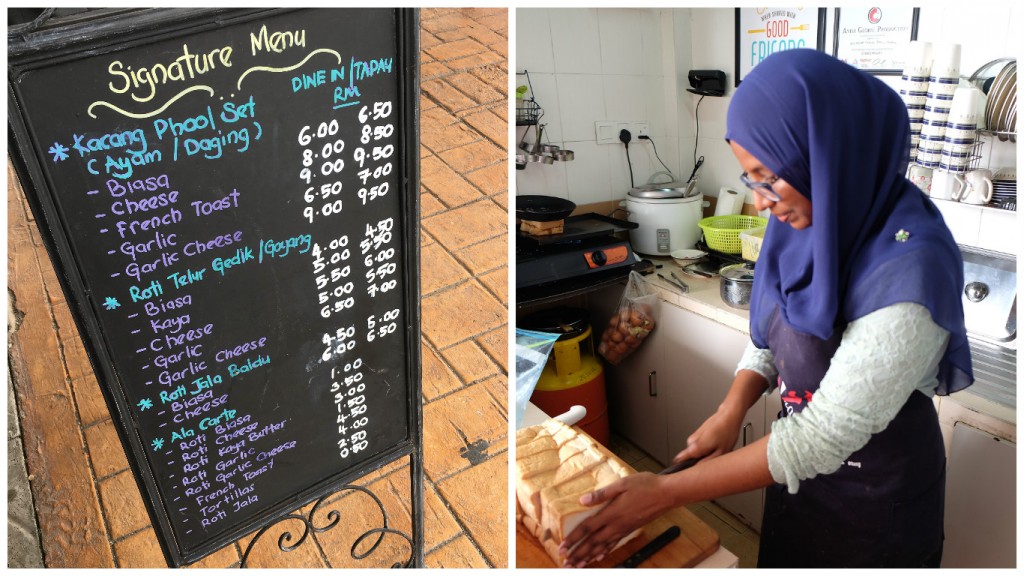 Signature Menu
DINE IN/TAPAU
RM
* Kacang Phool Set
(Ayam / Daging)
- Biasa 6.00 6.50
- Cheese 8.00 8.50
- French Toast 9.00 9.50
- Garlic 6.50 7.00
- Garlic Cheese 9.00 9.50
* Roti Telur Gedik/Goyang
- Biasa 4.00 4.50
- Kaya 5.00 5.50
- Cheese 5.50 6.00
- Garlic 5.00 5.50
- Garlic Cheese 6.50 7.00
* Roti Jala Baldu
- Biasa 4.50 5.00
- Cheese 6.00 6.50
* Ala Carte
- Roti Biasa 1.00
- Roti Cheese 3.50
- Roti Kaya Butter 3.00
- Roti Garlic 1.50
- Roti Garlic Cheese 4.50
- French Toast 4.00
- Tortillas 2.50
- Roti Jala 0.50
WHEN SHARED WITH
GOOD